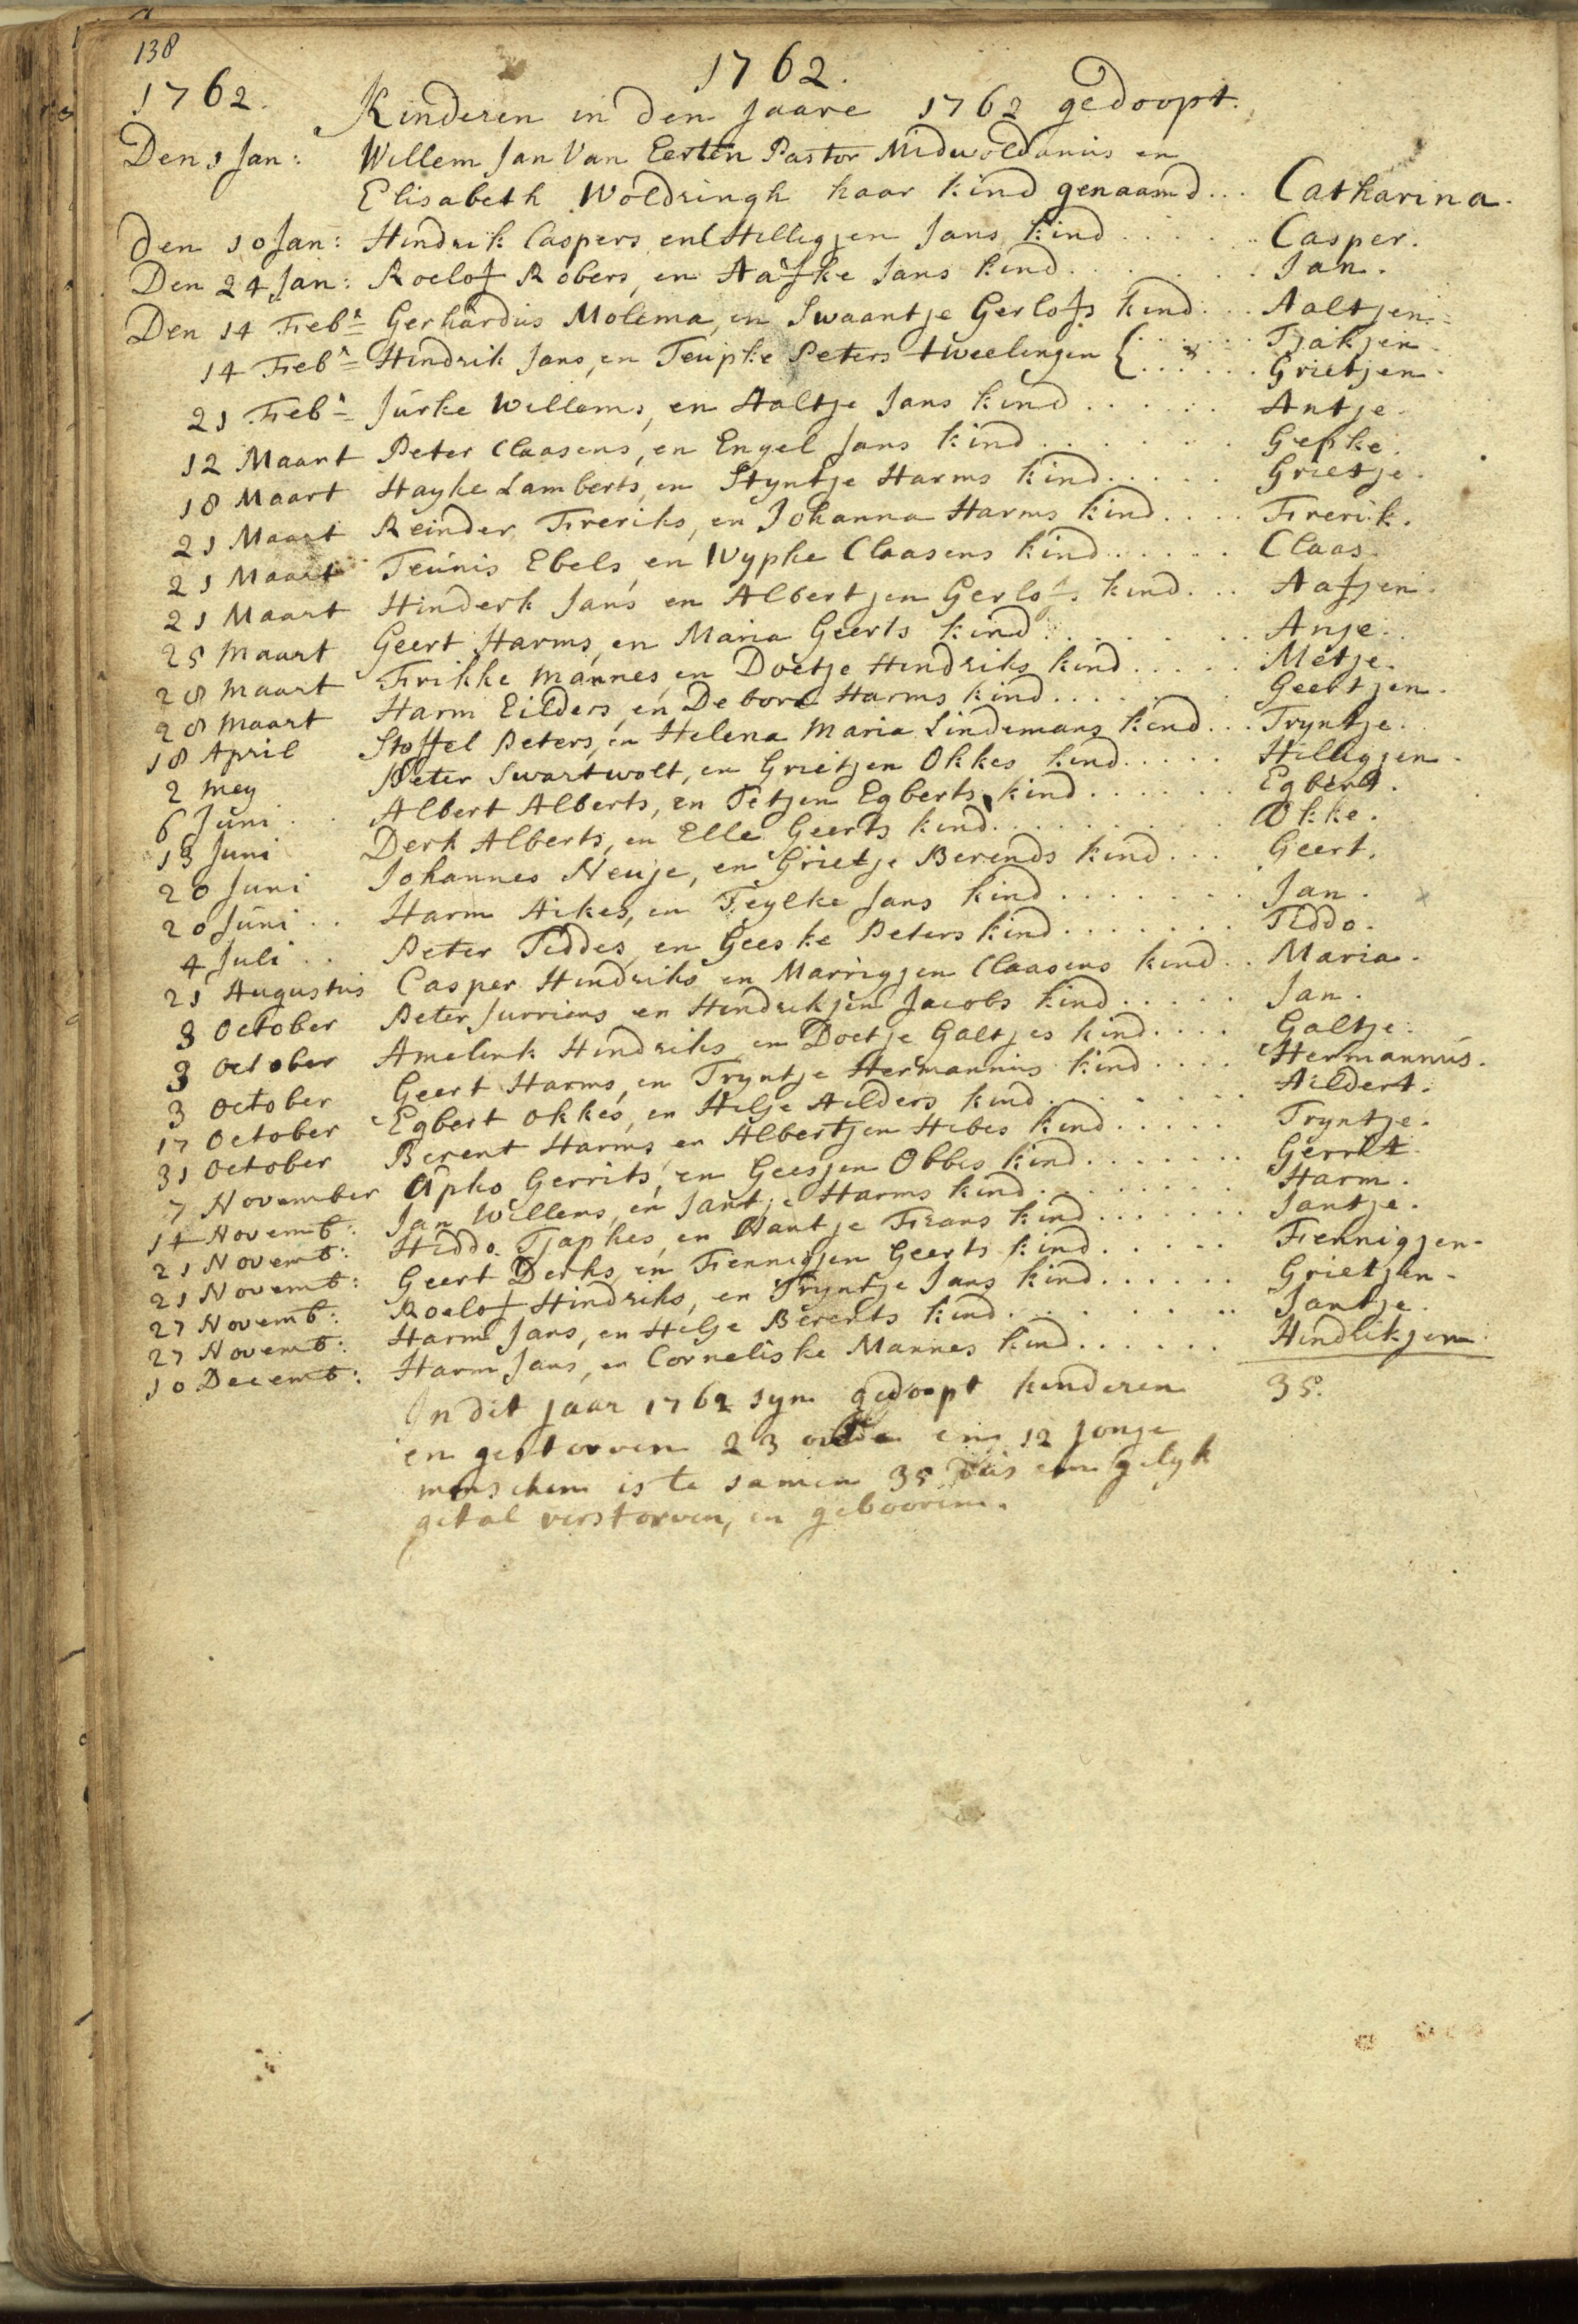 138
1762.
1762. Kinderen in den Jaare 1762 gedoopt.
Den 1 Jan: Willem Jan Van Eerten Pastor Midwoldanus en
Elisabeth Woldringh haar kind genaamd... Catharina.
den 10 Jan: Hindrik Caspers, en Hilligjen Jans kind ..... Casper.
Den 24 Jan: Roelof Robers, en Aafke Jans kind ....... Jan.
Den 14 Febr Gerhardus Molema, en Swaantje Gerlofs kind ... Aaltjen.
14 Febr Hindrik Jans, en Teupke Peters tweelingen { ...... Tjakjen.
...... Grietjen.
21 Febr Jurke Willems, en Aaltje Jans kind ...... Antje.
12 Maart Peter Claasens, en Engel Jans kind ....... Gepke.
18 Maart Hayke Lamberts, en Styntje Harms kind ..... Grietje.
21 Maart Reinder Freriks, en Johanna Harms kind .... Frerik.
21 Maart Teunis Ebels, en Wypke Claasens kind ...... Claas.
21 Maart Hinderk Jans en Albertjen Gerlofs kind ... Aafjen.
25 Maart Geert Harms, en Maria Geerts kind ....... Anje.
28 Maart Frikke Mannes, en Doetje Hindriks kind ..... Metje.
28 Maart Harm Eilders, en Debora Harms kind ....... Geertjen.
18 April Stoffel Peters, en Helena Maria Lindemans kind ... Tryntje.
2 Mey Peter Swartwolt, en Grietjen Okkes kind ..... Hilligjen.
6 Juni .. Albert Alberts, en Tetjen Egberts kind ...... Egbert.
13 Juni Derk Alberts, en Elle Geerts kind ......... Okke.
20 Juni Johannes Neuje, en Grietje Berends kind ... Geert.
20 Juni .. Harm Aikes, en Teylke Jans kind ....... Jan.
4 Juli .. Peter Tiddes, en Geeske Peters kind ....... Tiddo.
21 Augustus Casper Hindriks en Marrigjen Claasens kind .. Maria.
3 October Peter Jurriens en Hindrikjen Jacobs kind ..... Jan.
3 October Amelink Hindriks en Doetje Galtjes kind .... Galtje.
3 October Geert Harms, en Tryntje Hermannus kind .... Hermannus.
17 October Egbert Okkes, en Hilje Ailders kind ...... Aildert.
31 October Berent Harms, en Albertjen Hibes kind ..... Tryntje.
7 November Apko Gerrits, en Geesjen Obbes kind ....... Gerrit.
14 Novemb: Jan Willems, en Jantje Harms kind ........ Harm.
21 Novemb: Hiddo Tjapkes, en Nantje Frans kind ....... Jantje.
21 Novemb: Geert Derks, en Fennigjen Geerts kind ..... Fennigjen.
27 Novemb: Roelof Hindriks, en Tryntje Jans kind ...... Grietjen.
27 Novemb: Harm Jans, en Hilje Berents kind ........ Jantje.
10 Decemb: Harm Jans, en Corneliske Mannes kind ...... Hindrikjen
In dit jaar 1762 syn gedoopt kinderen 35.
en gestorven 23 oude en 12 jonge
menschen is te samen 35 dus een gelyk
getal verstorven, en gebooren.